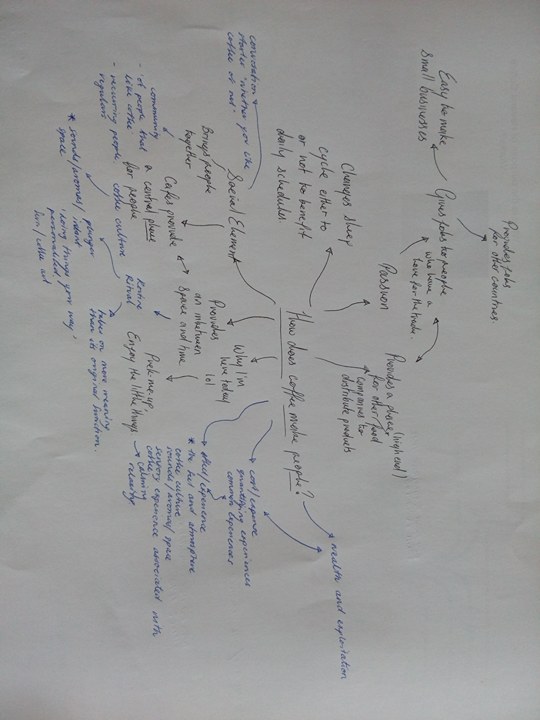 How does coffee make people?
Provides jobs
for other countries
Easy to make
small businesses
Gives jobs to people
who have a
love for the trade.
Passion
Provides a place
(high end)
for other food
companies to
distribute products
Changes sleep
cycle either to
or not to benefit
daily schedules
Social Element
conversation
starter "whether you like
coffee or not"
Brings people
together
Cafes provide
a central place
for people
community
- of people that
like coffee
- recurring people
regulars
coffee culture
* sounds/aromas/
space
younger
'doing things your way'
personalised
Provides
an inbetween
space and time
Why I'm
here today
lol
Pick-me-up
Enjoy the little things
Routine
Ritual
takes on more meaning
than its original function.
→ calming
relaxing
* the hus and atmosphere
coffee culture
sounds/aromas/space
sensory experience associated with
coffee
cost/expense
quantifying experiences
common experiences
health and exploitation